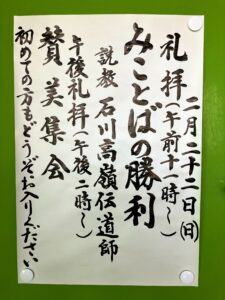 二月二十二日(日)
礼拝(午前十一時〜)
みことばの勝利
説教 石川高嶺伝道師
午後礼拝(午後二時〜)
賛美集会
初めての方もどうぞお入りください